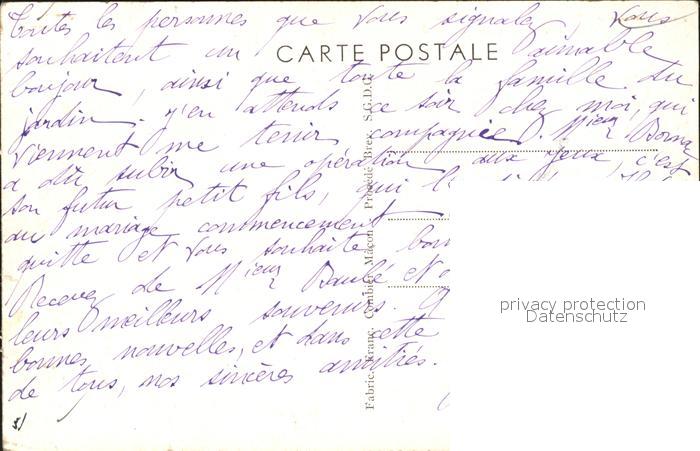 Toutes les personnes que vous signale, vous
souhaitent un aimable
CARTE POSTALE
bonjour, ainsi que toute la famille du
jardin. j'en attends ce soir chez moi, qui
viennent me tenir compagnie. Mieur
a dû subir une opération aux yeux, c'est
son futur petit fils, qui
au mariage commencement
quitte et vous souhaite
Recevez de Mieur Baulé et
leurs meilleurs souvenirs.
bonnes nouvelles, et dans cette
de tous, nos sincères amitiés.
Fabric. Franç. Combier Macon Procédé Brev. S.G.D.G.
privacy protection
Datenschutz